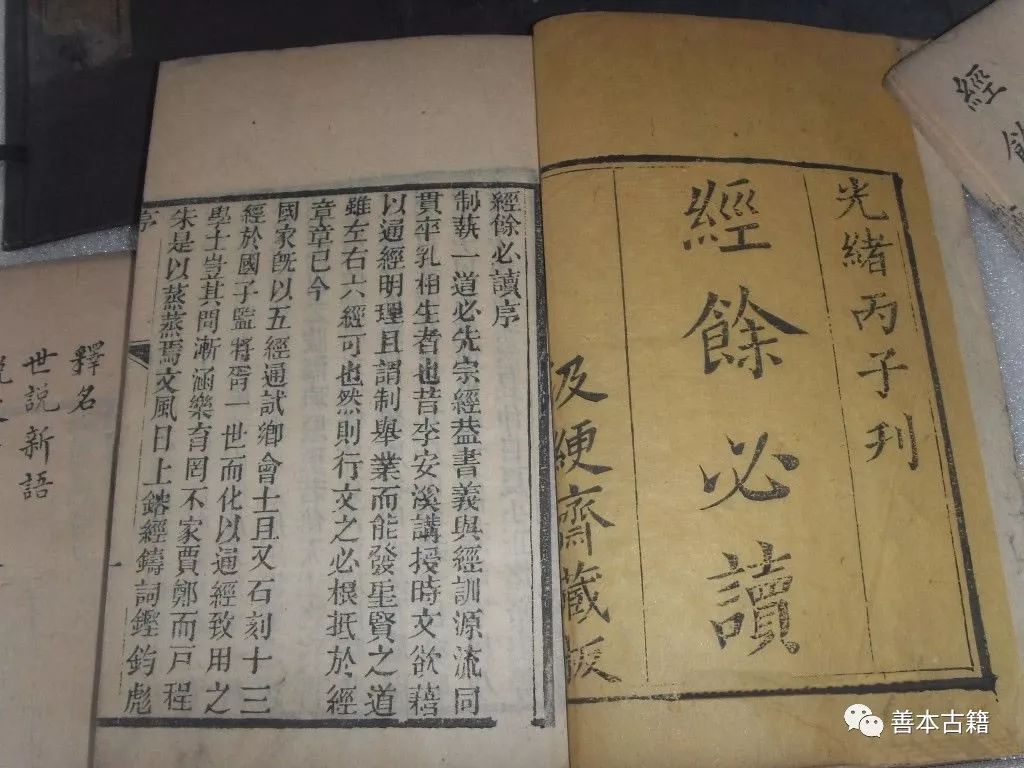 經
光緒丙子刊
經餘必讀
汲綆齋藏板
經餘必讀序
制蓺一道必先宗經葢書義與經訓源流同
貫平乳相生者也昔李安溪講授時文欲藉
以通經明理且謂制舉業而能發聖賢之道
雖左右六經可也然則行文之必根抵於經
章章已今
國家旣以五經通試鄉會士且又石刻十三
經於國子監將胥一世而化以通經致用之
學士豈其間漸涵樂育罔不家賈鄭而戸程
朱是以蒸蒸焉文風日上鎔經鑄詞鏗鈞彪
序
一
釋名
世説新語
善本古籍